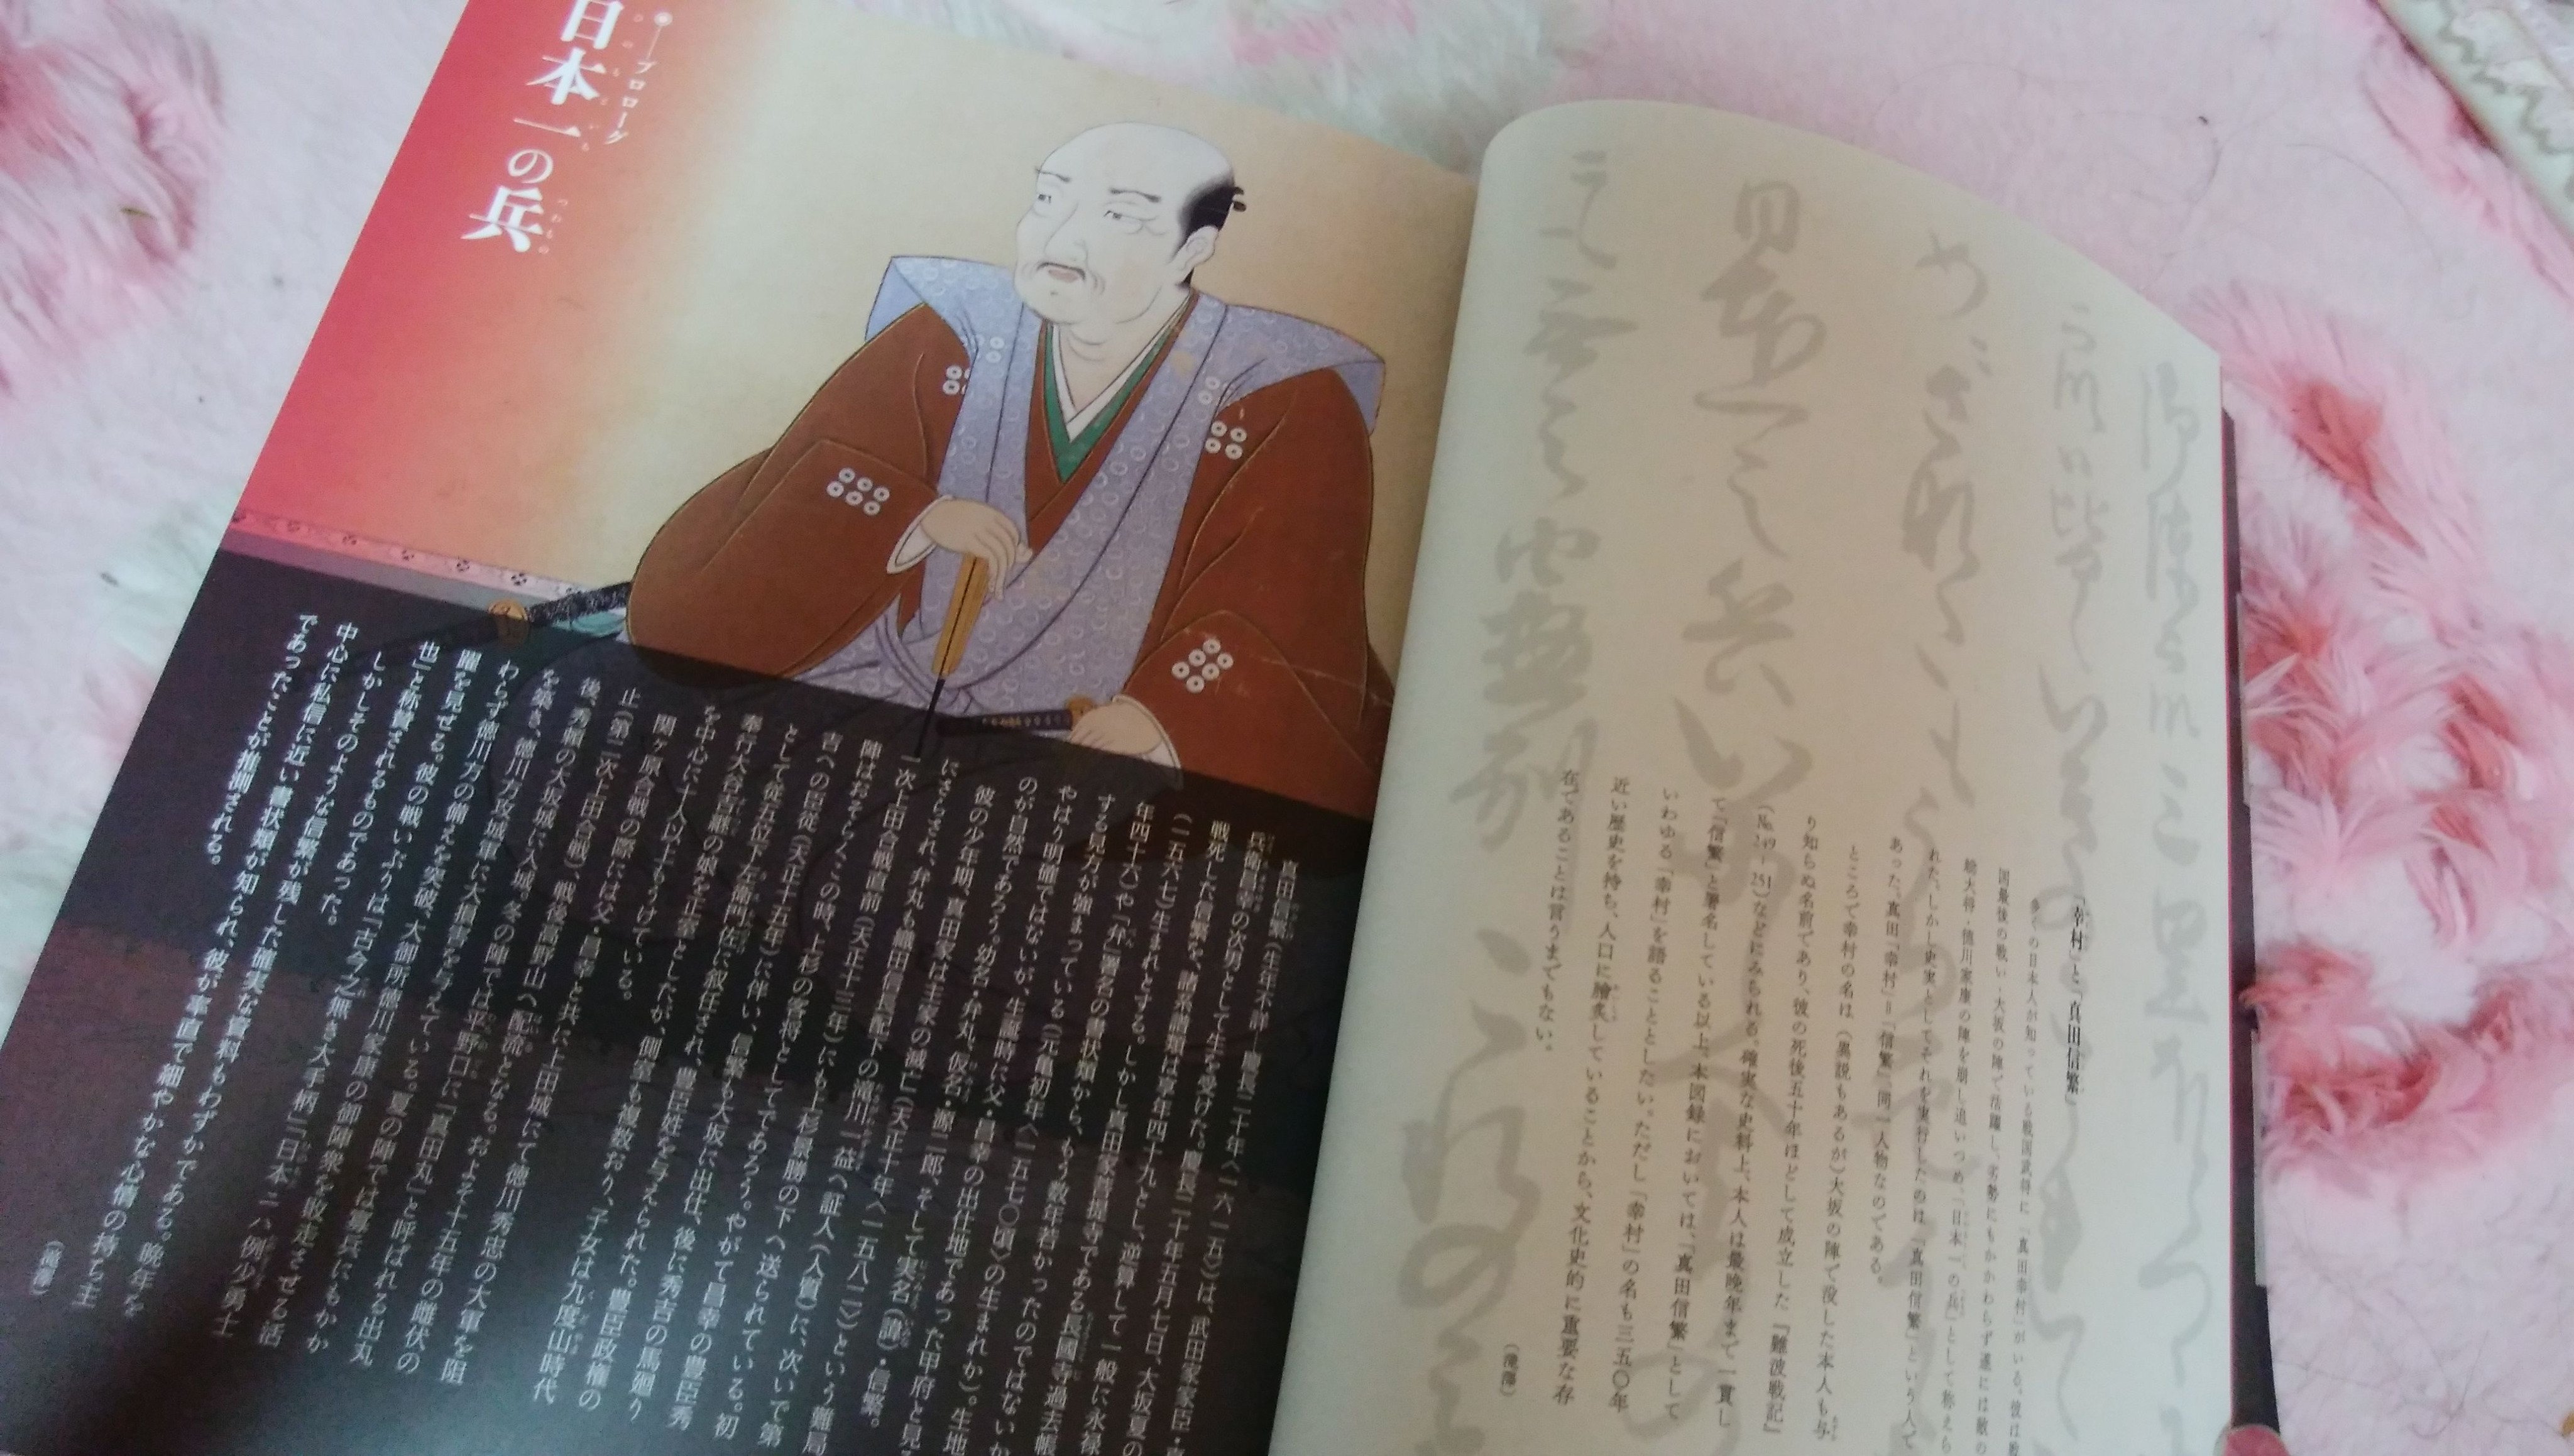 「幸村」と「真田信繁」
多くの日本人が知っている戦国武将に「真田幸村」がいる。彼は戦
国最後の戦い・大坂の陣で活躍し、劣勢にもかかわらず遂には敵の
総大将・徳川家康の陣を崩し追いつめ、「日本一の兵」として称えら
れた。しかし史実としてそれを実行したのは「真田信繁」という人で
あった。真田「幸村」=「信繁」、同一人物なのである。
ところで幸村の名は、(異説もあるが)大坂の陣で没した本人も与
り知らぬ名前であり、彼の死後五十年ほどして成立した『難波戦記』
(№249・251)などにみられる。確実な史料上、本人は最晩年まで一貫し
て「信繁」と署名している以上、本図録においては、「真田信繁」として
いわゆる「幸村」を語ることとしたい。ただし「幸村」の名も三五〇年
近い歴史を持ち、人口に膾炙していることから、文化史的に重要な存
在であることは言うまでもない。
(滝澤)
プロローグ
日本一の兵
ひのもといち つわもの
真田信繁(生年不詳―慶長二十年〈一六一五〉)は、武田家家臣・
兵衛昌幸の次男として生を受けた。慶長二十年五月七日、大坂夏の
戦死した信繁を、諸系譜類は享年四十九とし、逆算して一般に永禄
(一五六七)生まれとする。しかし真田家菩提寺である長國寺過去帳
年四十六)や「弁」署名の書状類から、もう数年若かったのではないか
する見方が強まっている(元亀初年〈一五七〇頃〉の生まれか)。生地
やはり明確ではないが、生誕時に父・昌幸の出仕地であった甲府と見
のが自然であろう。幼名・弁丸、仮名・源二郎、そして実名(諱)・信繁。
彼の少年期、真田家は主家の滅亡(天正十年〈一五八二〉)という難局
にさらされ、弁丸も織田信長配下の滝川一益へ証人(人質)に、次いで第
一次上田合戦直前(天正十三年)にも上杉景勝の下へ送られている。初
陣はおそらくこの時、上杉の客将としてであろう。やがて昌幸の豊臣秀
吉への臣従(天正十五年)に伴い、信繁も大坂に出仕、後に秀吉の馬廻り
として従五位下左衛門佐に叙任され、豊臣姓を与えられた。豊臣政権の
奉行大谷吉継の娘を正室としたが、側室も複数おり、子女は九度山時代
を中心に十人以上もうけている。
関ヶ原合戦の際には父・昌幸と共に上田城にて徳川秀忠の大軍を阻
止(第二次上田合戦)、戦後高野山へ配流となる。およそ十五年の雌伏の
後、秀頼の大坂城に入城。冬の陣では平野口に「真田丸」と呼ばれる出丸
を築き、徳川方攻城軍に大損害を与えている。夏の陣では寡兵にもかか
わらず徳川方の備えを突破、大御所徳川家康の御陣衆を敗走させる活
躍を見せる。彼の戦いぶりは「古今之無き大手柄」「日本ニハ例少勇士
也」と称賛されるものであった。
しかしそのような信繁が残した確実な資料もわずかである。晩年を
中心に私信に近い書状類が知られ、彼が率直で細やかな心情の持ち主
であったことが推測される。
(滝澤)